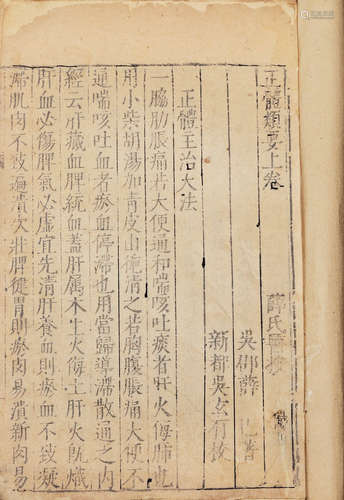 正體類要上卷
薛氏醫按
吳郡薛 著
新都吳玄有校
正體主治大法
一脇肋脹痛若大便通和喘咳吐痰者肝火侮肺也
用小柴胡湯加青皮山梔清之若胸腹脹痛大便不
通喘咳吐血者瘀血停滯也用當歸導滯散通之內
經云肝藏血脾統血蓋肝属木生火侮土肝火既熾
肝血必傷脾氣必虛宜先清肝養血則瘀血不致凝
滯肌肉不致遍潰次壯脾健胃則瘀肉易潰新肉易